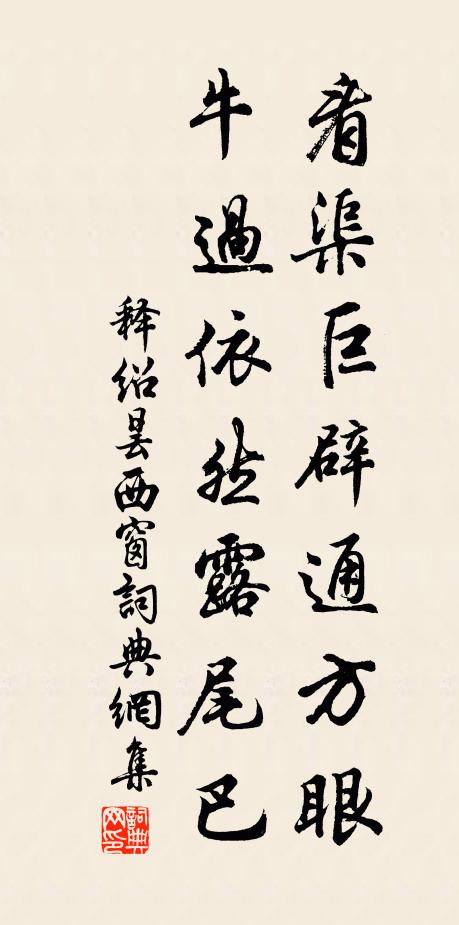 看渠巨辟通方眼
牛過依然露尾巴
释绍昙西窗詞典網集
詞典网印